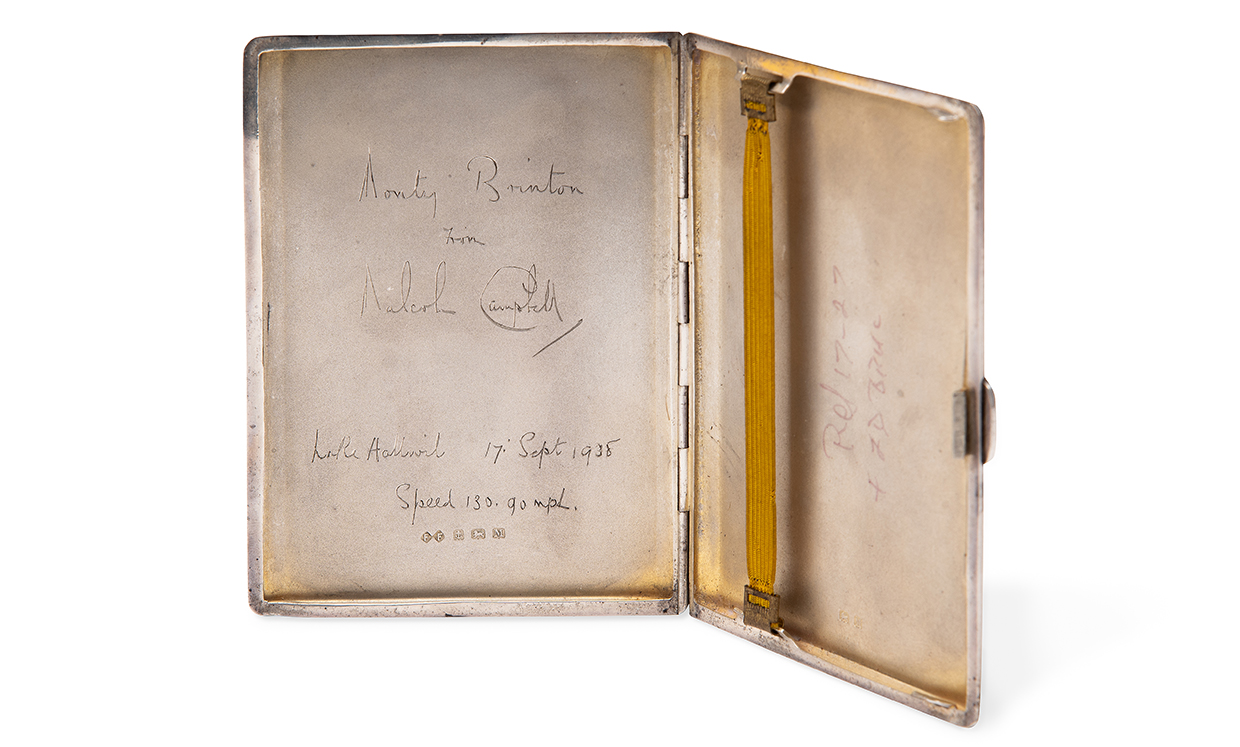 Monty Brinton
from
Malcolm Campbell
Lake Hallwil 17. Sept 1938
Speed 130.90 mph.
Ref 17-27
+ ZD